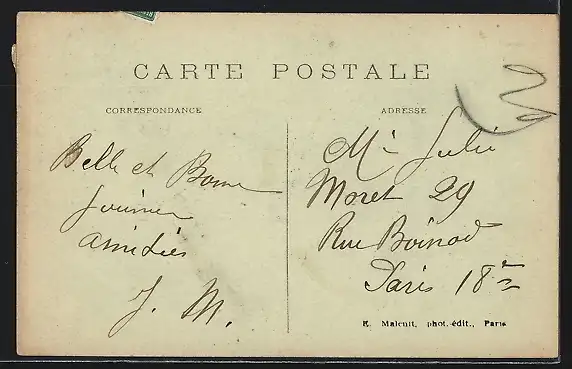 CARTE POSTALE
CORRESPONDANCE
ADRESSE
Belle et Bonne
journée
amitiés
J. M.
Mr Julie
Moret 29
Rue Boinod
Paris 18e
E. Malcuit, phot.-édit., Paris